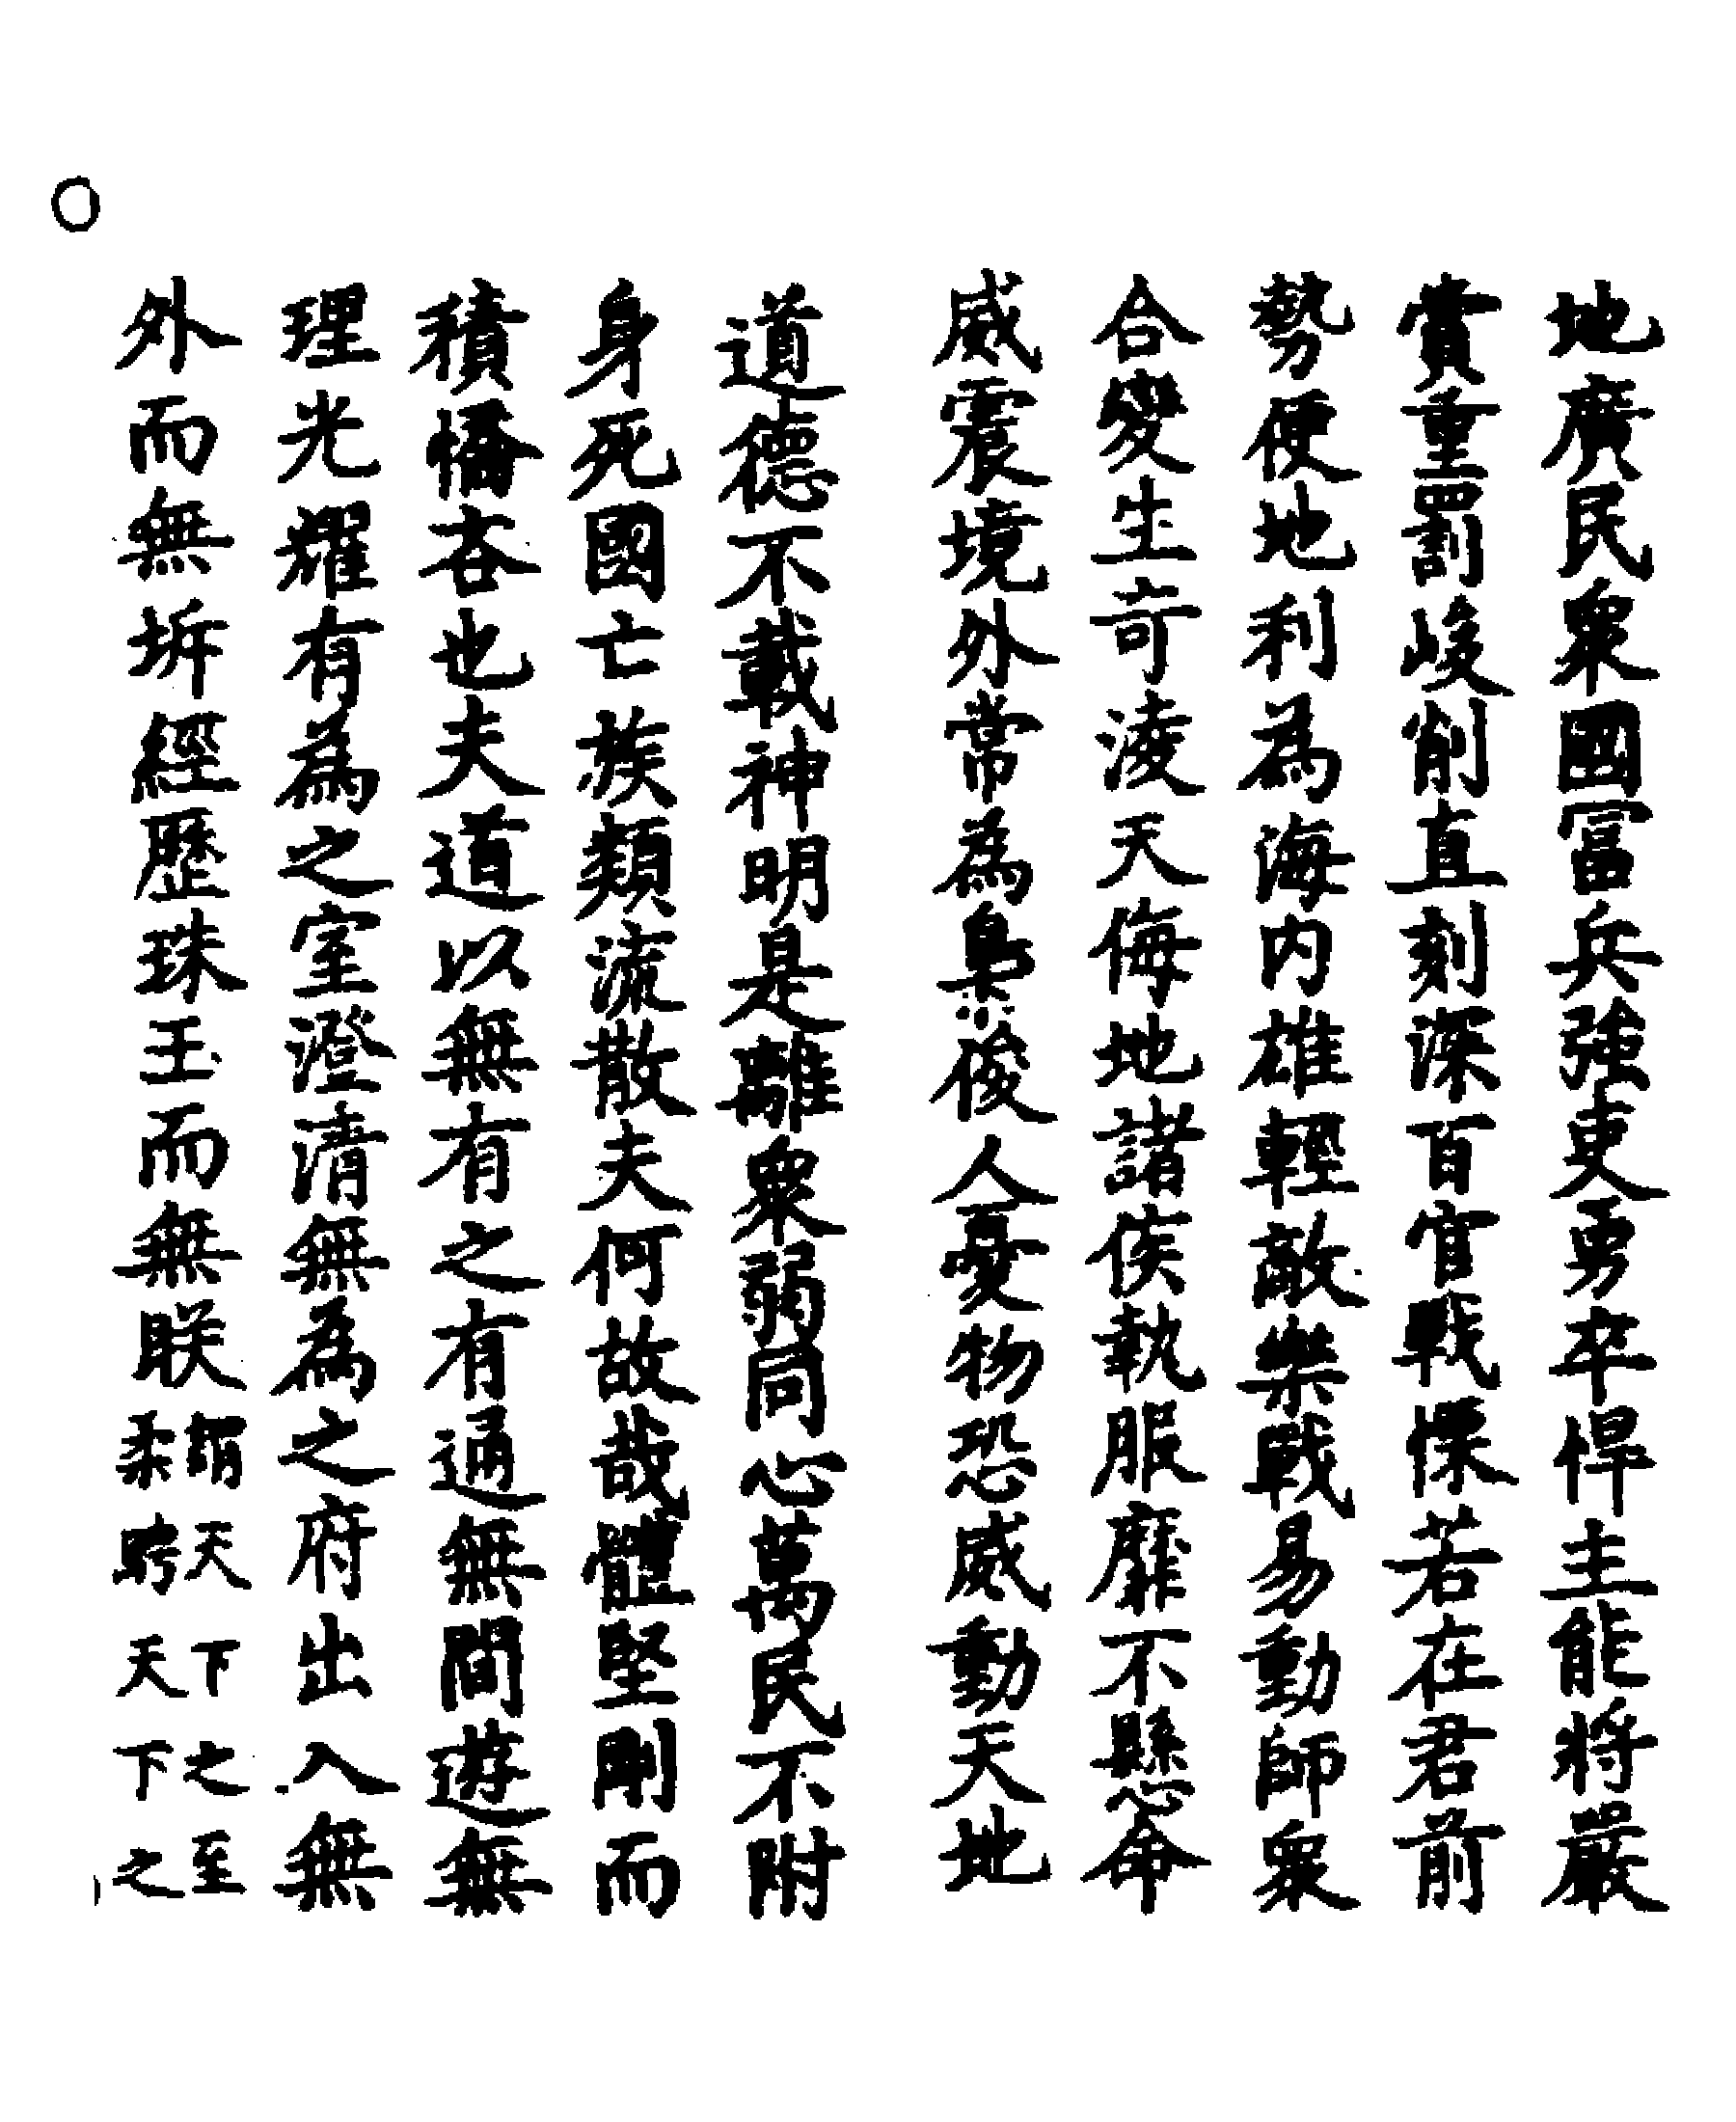 地廣民衆國冨兵強吏勇卒悍主能將嚴
賞重罰峻削直刻深百官戰慄若在君前
勢便地利為海内雄輕敵樂戰易動師衆
合變生奇淩天侮地諸侯執服靡不懸命
威震境外常為梟俊人憂物恐威動天地
道德不載神明是離衆弱同心萬民不附
身死國亡族類流散夫何故哉體堅剛而
積憍吝也夫道以無有之有通無間遊無
理光耀有為之室澄清無為之府出入無
外而無坼經歷珠玉而無朕
謂天下之至
柔騁天下之